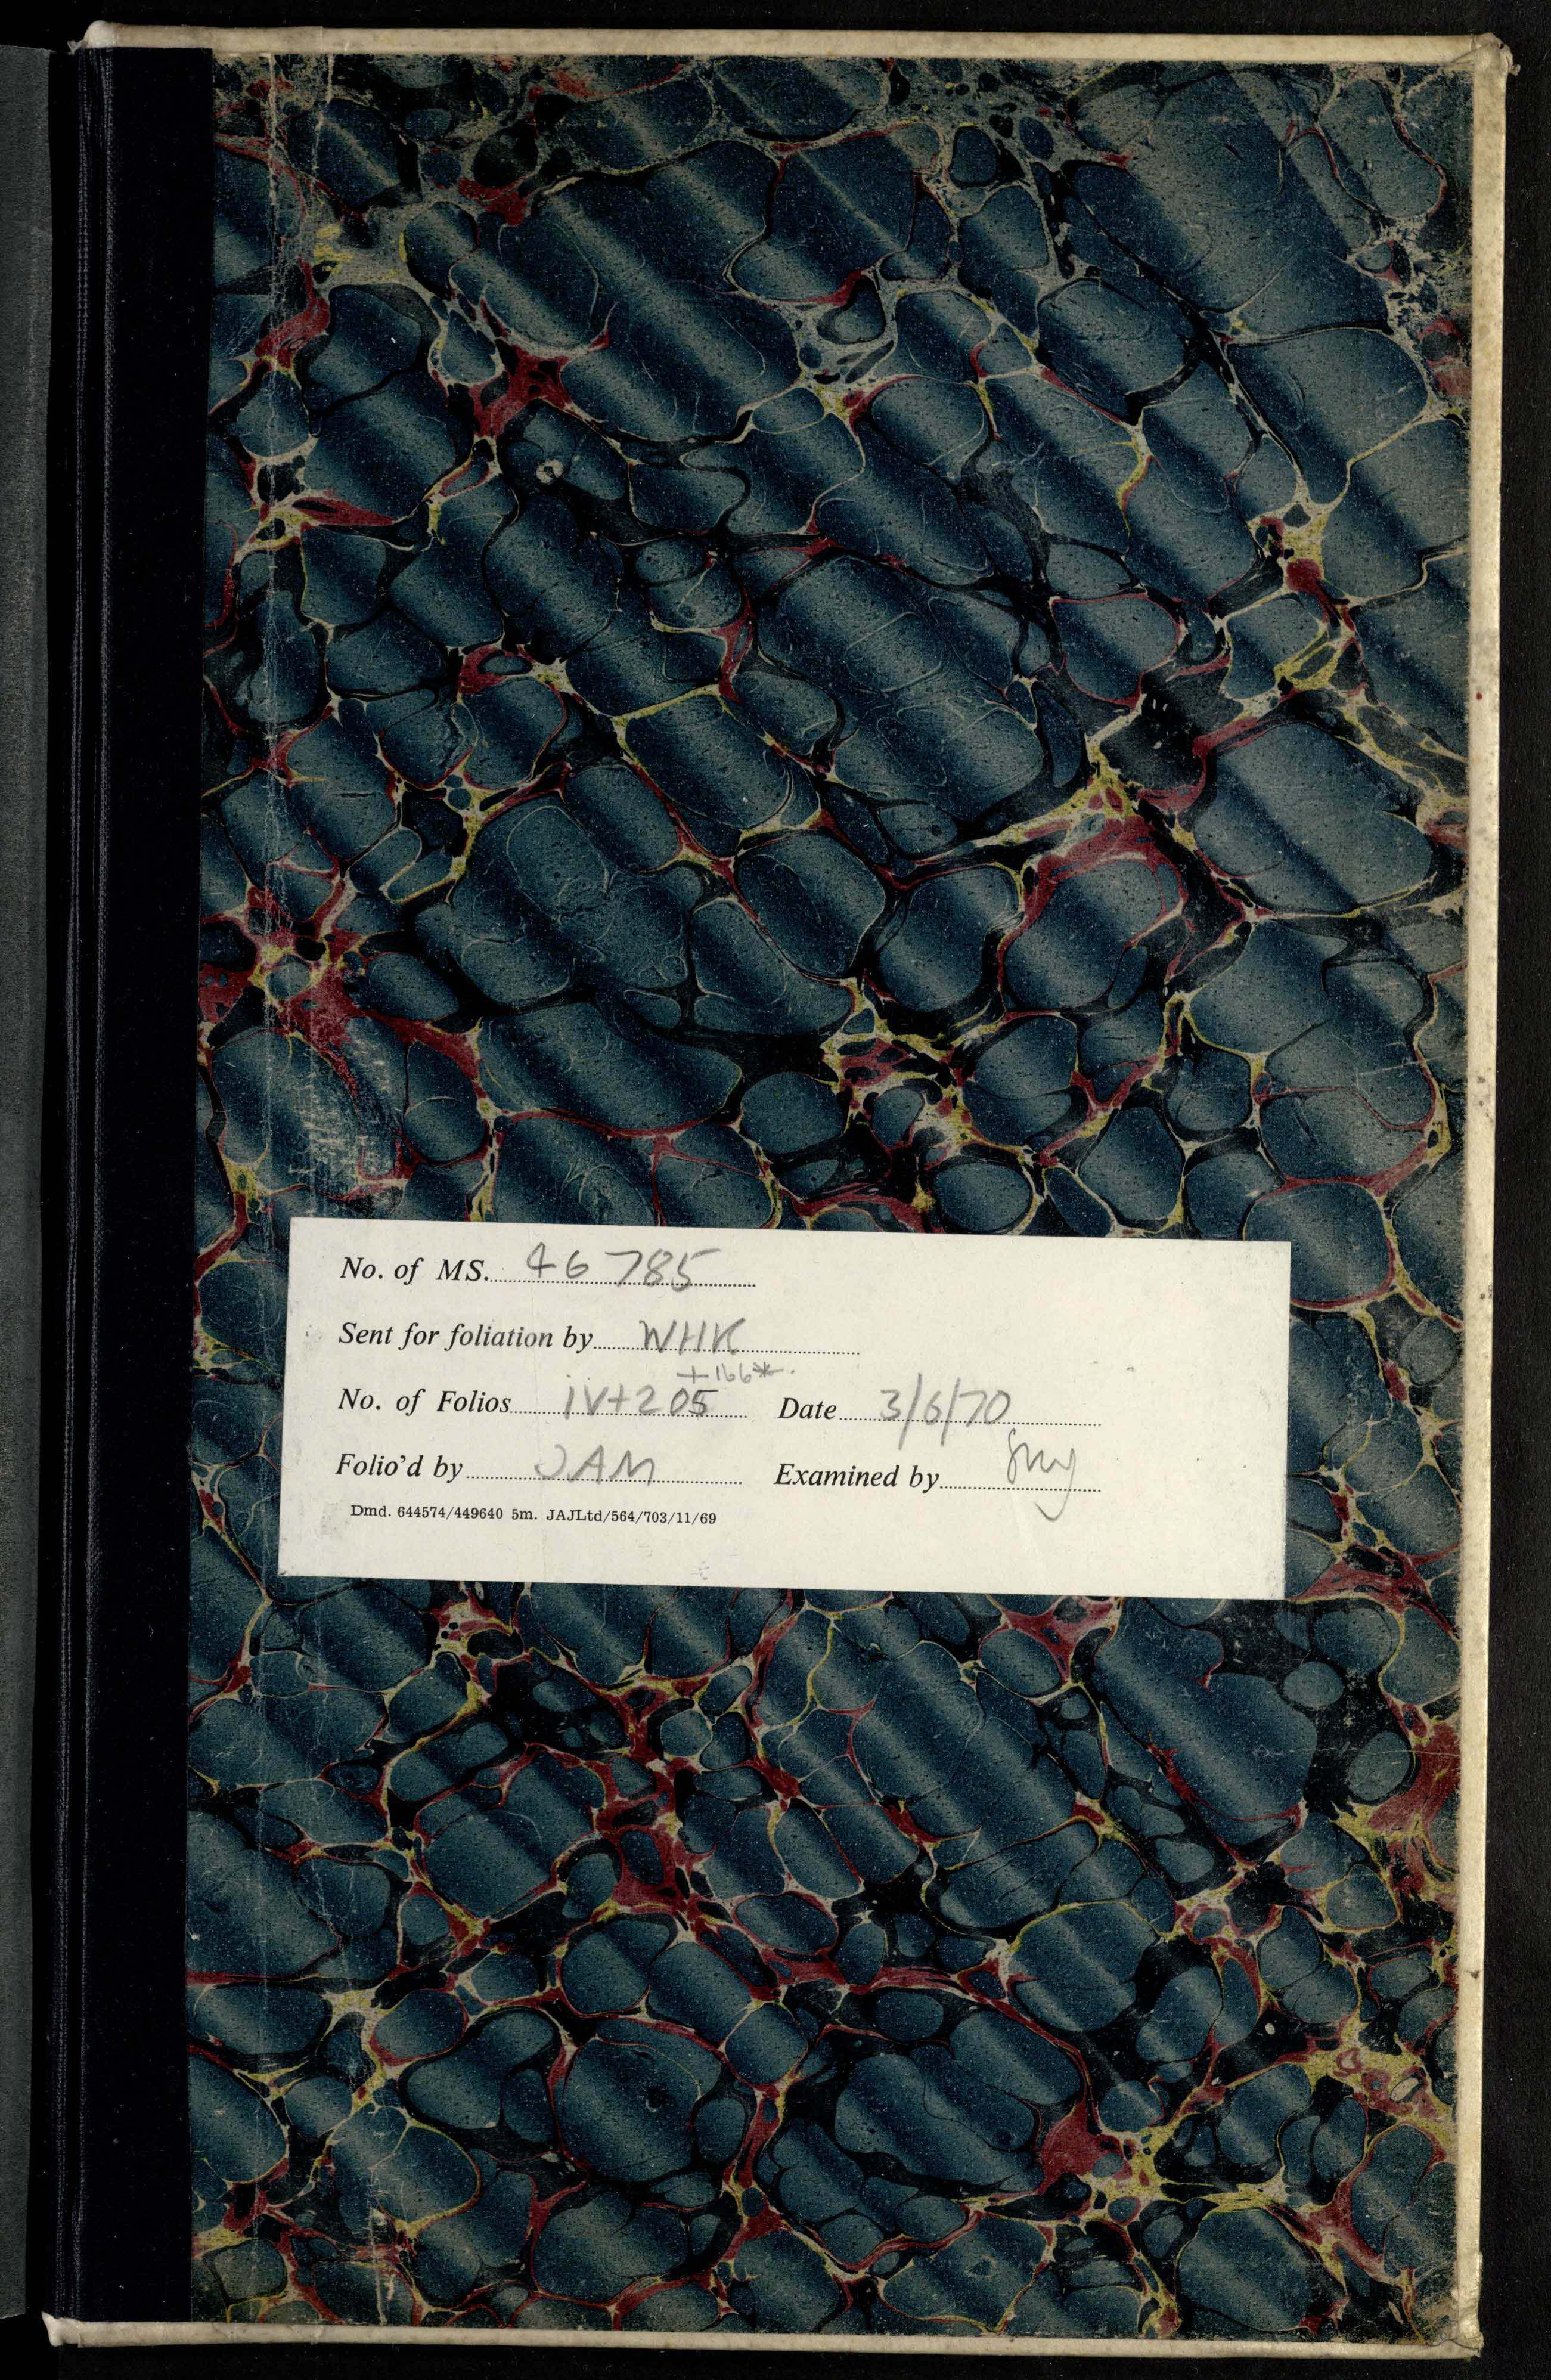 No. of MS. 46785
Sent for foliation by WHK
+166*
No. of Folios iv+205 Date 3/6/70
Folio'd by JAM Examined by
Dmd. 644574/449640 5m. JAJLtd/564/703/11/69